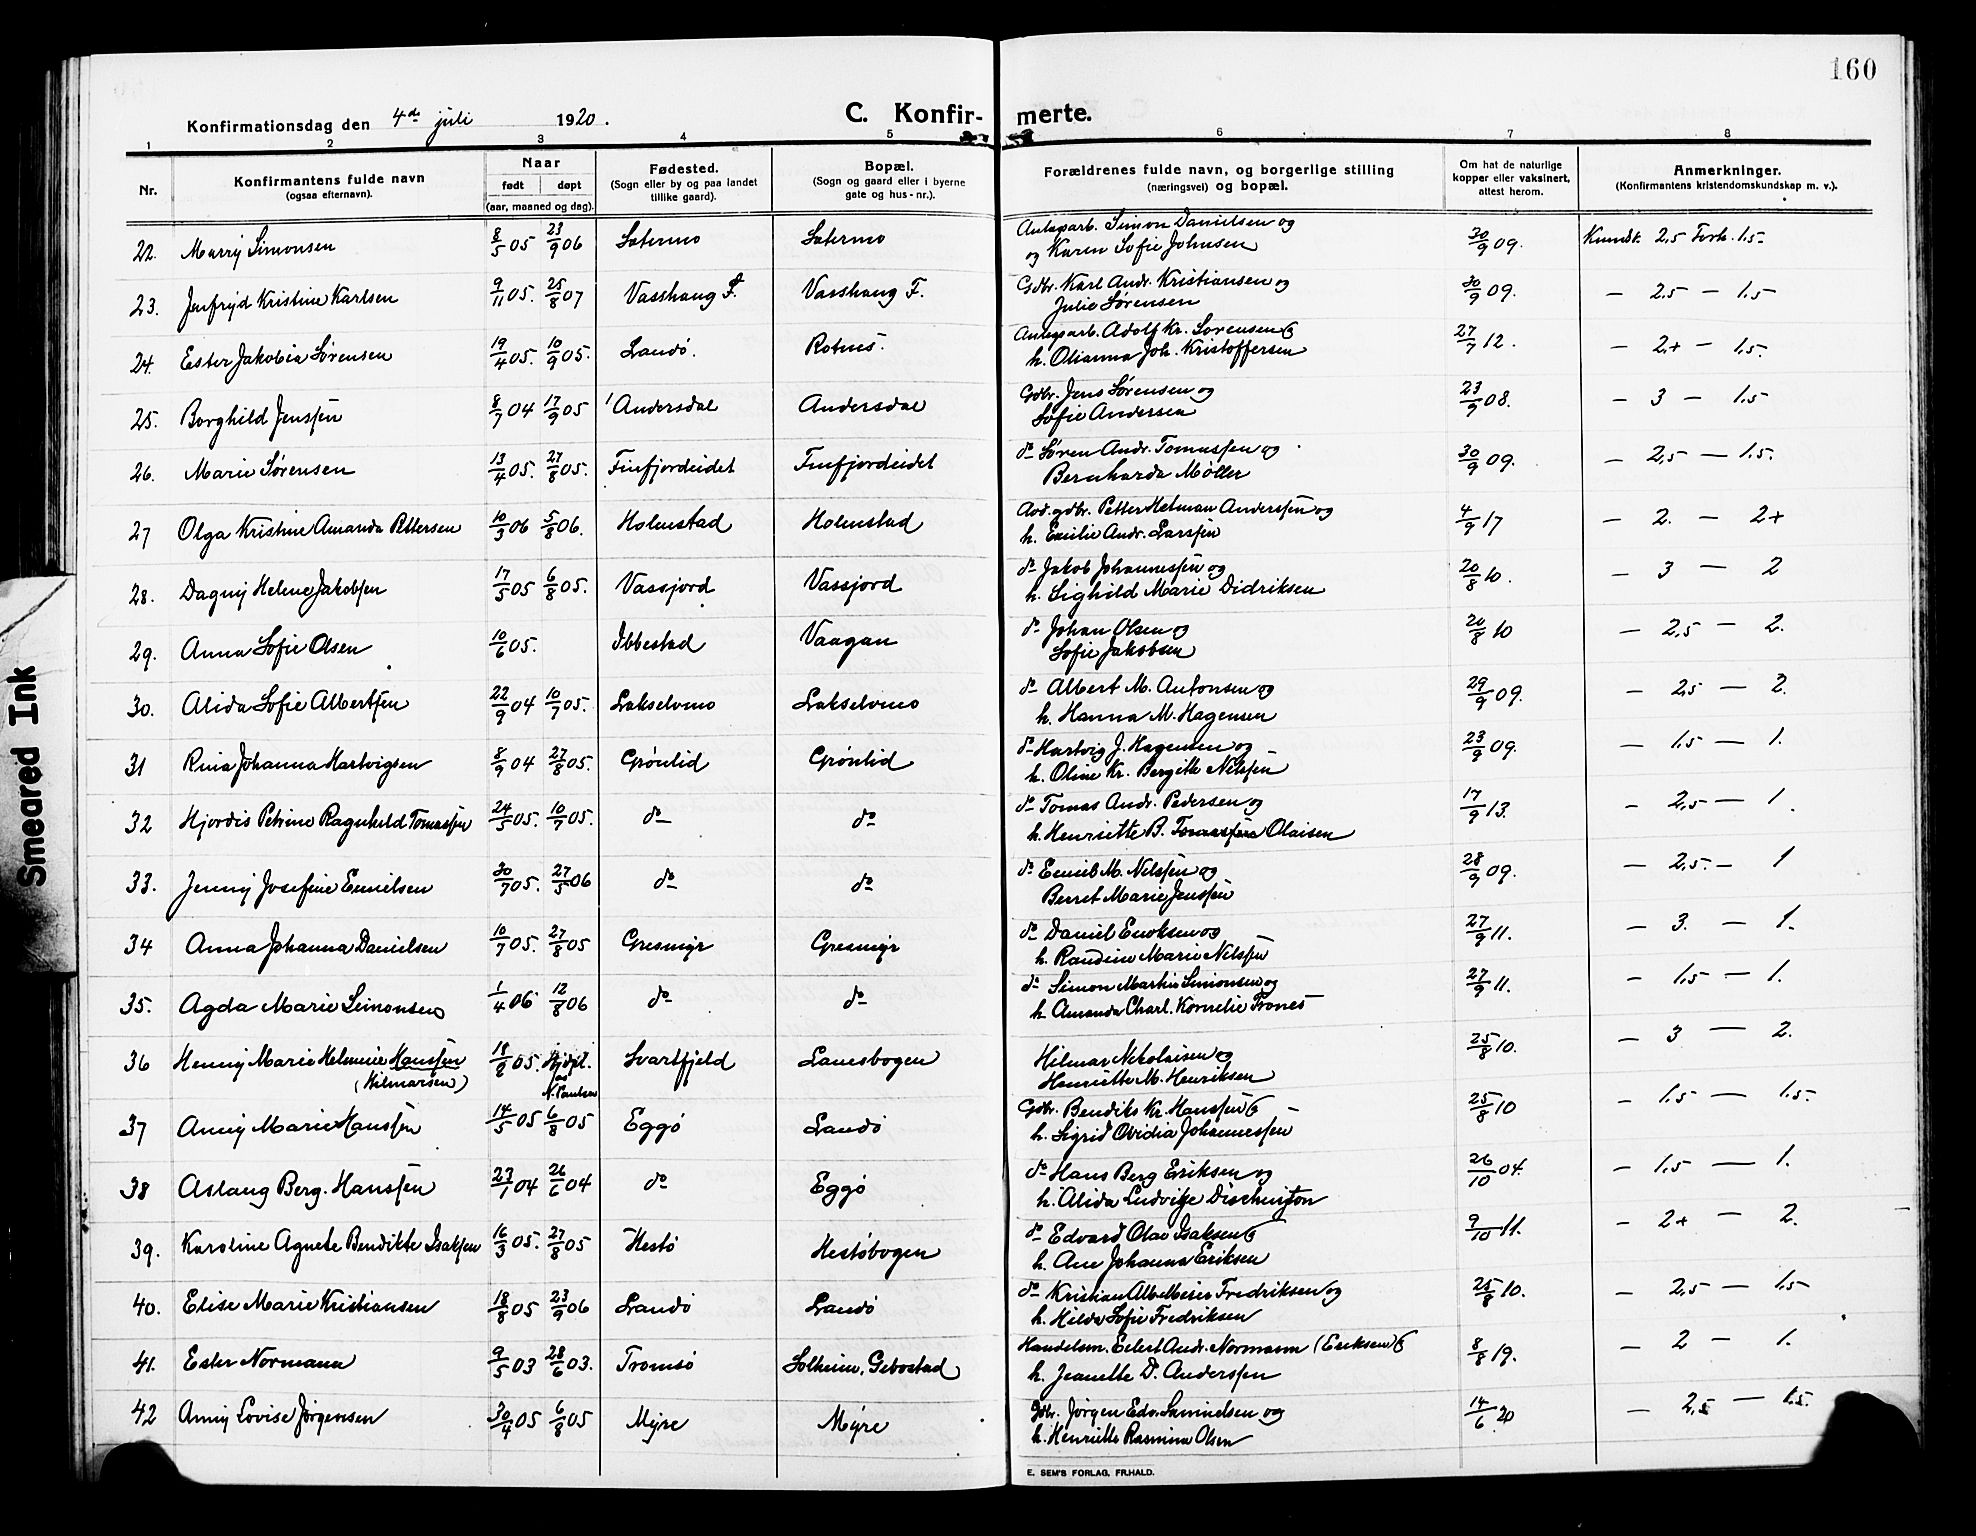 160
Konfirmationsdag den 4de juli 1920.
C. Konfirmerte.
1 2 3 4 5 6 7 8
Nr.
Konfirmantens fulde navn
(ogsaa efternavn).
Naar
født døpt
(aar, maaned og dag).
Fødested.
(Sogn eller by og paa landet
tillike gaard).
Bopæl.
(Sogn og gaard eller i byerne
gate og hus-nr.).
Forældrenes fulde navn, og borgerlige stilling
(næringsvei) og bopæl.
Om hat de naturlige
kopper eller vaksinert,
attest herom.
Anmerkninger.
(Konfirmantens kristendomskundskap m. v.).
22. Marry Simonsen 8/5 05 23/9 06 Sætermo Sætermo Anlægsarb. Simon Danielsen og
og Karen Sofie Johnsen 30/9 09. Kundsk. 2,5 Forh. 1,5
23. Jenfryd Kristine Karlsen 9/11 05. 25/8 07 Vasshaug F. Vasshaug F. Gdbr. Karl Andr. Kristiansen og
Julie Sørensen 30/9 09. — 2,5 — 1,5
24. Ester Jakobia Sørensen 19/4 05. 10/9 05. Landø. Rotnes. Anlægsarb. Adolf Kr. Sørensen &
h. Olianna Joh. Kristoffersen 27/7 12. — 2+ — 1,5.
25. Borghild Jenssen 8/7 04 17/9 05 Andersdal Andersdal Gdbr. Jens Sørensen og
Sofie Andersen 23/9 08. — 3 — 1,5
26. Marie Sørensen 13/4 05. 27/8 05. Finfjordeidet Finfjordeidet do Søren Andr. Tomassen og
Bernharda Møller 30/9 09. — 2,5 — 1,5.
27 Olga Kristine Amanda Pettersen 10/3 06 5/8 06. Holmstad Holmstad Avd. gdbr. Petter Helman Anderssen og
h. Emilie Andr. Larssen 4/9 17 — 2. — 2+
28. Dagny Helene Jakobsen 17/5 05 6/8 05. Vassjord Vassjord do Jakob Johannessen og
h. Sighild Marie Didriksen 20/8 10. — 3 — 2
29. Anna Sofie Olsen 10/6 05. Ibbestad Vaagan do Johan Olsen og
Sofie Jakobsen 20/8 10 — 2,5 — 2.
30. Alida Sofie Albertsen 22/9 04 10/7 05. Lakselvmo Lakselvmo do Albert M. Antonsen og
h. Hanna M. Hagensen 29/9 09. — 2,5 — 2.
31 Rina Johanna Hartvigsen 8/9 04 27/8 05. Grønlid Grønlid do Hartvig J. Hagensen og
h. Oline Kr. Bergitte Nilssen 23/9 09. — 1,5 — 1.
32 Hjordis Petrine Ragnhild Tomassen 24/5 05. 10/7 05. do do do Tomas Andr. Pedersen og
h. Henriette B. Tomassen Olaisen 17/9 13. — 2,5 — 1.
33. Jenny Josefine Emilsen 30/7 05. 27/5 06 do do do Emil M. Nilssen og
Berret Marie Jenssen 28/9 09. — 2,5. — 1
34 Anna Johanna Danielsen 10/7 05. 27/8 05 Gresmyr Gresmyr do Daniel Enoksen og
h. Raudine Marie Nilssen 27/9 11. — 3. — 1.
35. Agda Marie Simonsen 1/4 06 12/8 06 do do do Simon Martin Simonsen og
h. Amanda Charl. Kornelie Trones 27/9 11. — 1,5 — 1.
36 Henny Marie Helmine Hanssen
(Hilmarsen) 18/8 05. Hjdpt.
av
N. Paulsen Svartfjeld Lanesbogen Hilmar Nikolaisen og
Henriette M. Henriksen 25/8 10. — 3 — 2.
37 Anny Marie Hanssen 14/5 05 6/8 05 Eggø Landø Gdbr. Bendiks Kr. Hanssen &
h. Sigrid Ovidia Johannessen 25/8 10 — 1,5 — 1,5.
38 Aslaug Berg. Hanssen 23/1 04 26/6 04 do Eggø do Hans Berg Eriksen og
h. Alida Ludvikke Dischington 26/10 04. — 1,5 — 1.
39. Karoline Agnete Bendikte Isaksen 16/3 05. 27/8 05 Hestø Hestøbogen do Edvard Olav Isaksen &
h. Ane Johanna Eriksen 9/10 11. — 2+ — 2.
40. Elise Marie Kristiansen 18/8 05 23/9 06 Landø Landø do Kristian Alb. Meier Fredriksen og
h. Hilda Sofie Fredriksen 25/8 10. — 2,5 — 1,5
41. Ester Normann 9/5 03 28/6 03. Tromsø Solheim, Gebostad Handelsm. Eilert Andr. Normann (Eriksen) &
h. Jeanette D. Anderssen 8/8 19. — 2 — 1.
42 Anny Lovise Jørgensen 30/4 05 6/8 05 Myre Myre Gdbr. Jørgen Edv. Samuelsen og
h. Henriette Rasmina Olsen 14/6 20 — 2,5 — 1,5.
E. SEM'S FORLAG, FR.HALD.
Smeared Ink